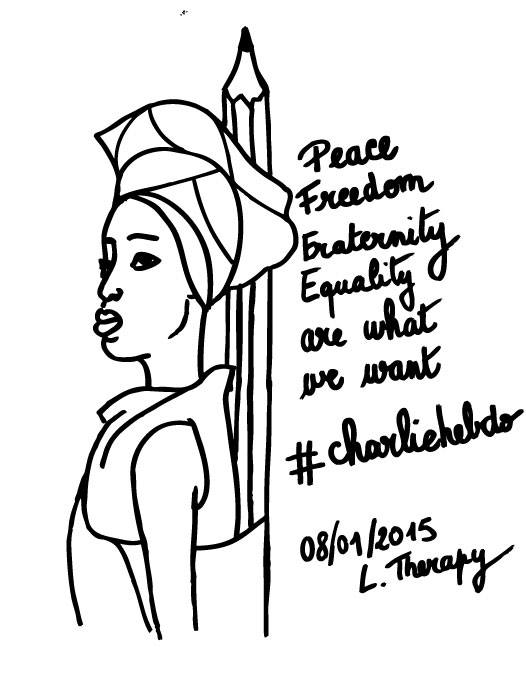 Peace
Freedom
Fraternity
Equality
are what
we want
#charliehebdo
08/01/2015
L. Therapy